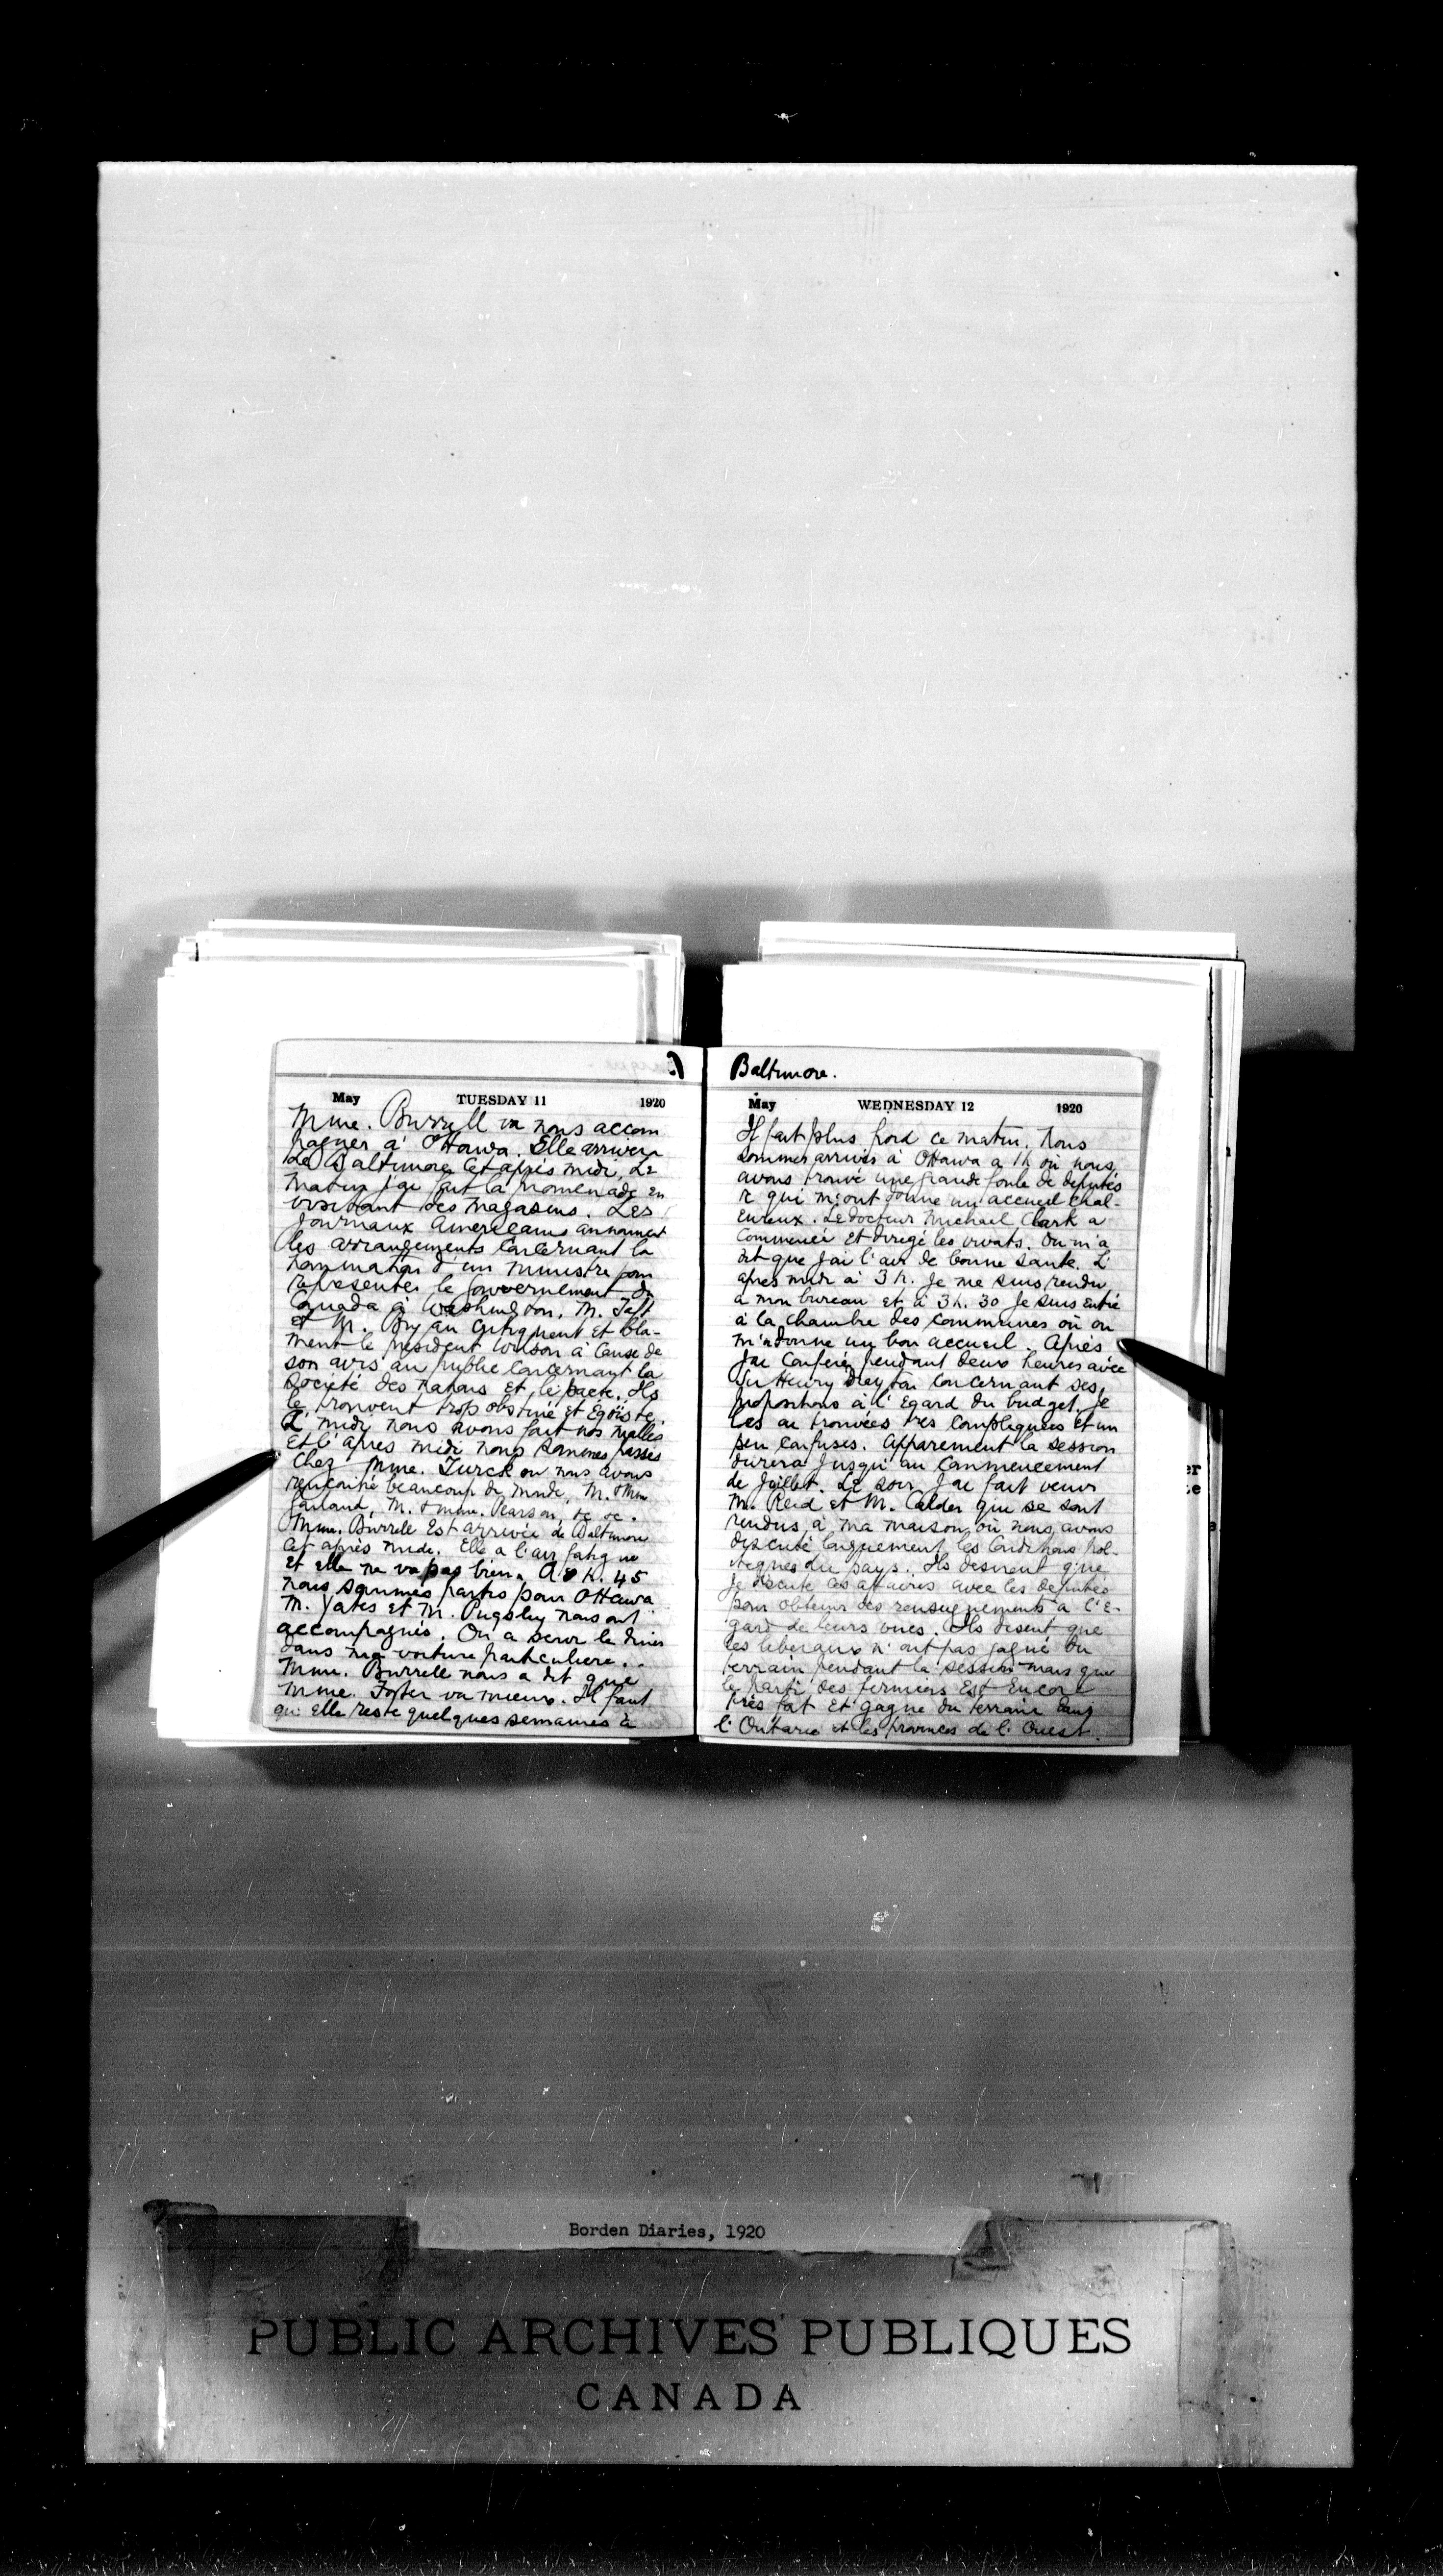 May TUESDAY 11 1920
Mme. Burrell va nous accom
pagner à Ottawa. Elle arrivera
de Baltimore cet après midi. Le
matin j'ai fait la promenade en
visitant des magasins. Les
journaux Americains annoncent
les arrangements concernant la
nomination d'un ministre pour
representer le Gouvernement du
Canada à Washington. M. Taft
et M. Bryan critiquent et bla-
ment le president Wilson à cause de
son avis au public concernant la
Société des nations et le pacte. Ils
le trouvent trop obstiné et Egoïste.
A midi nous avons fait nos malles
Et l'apres midi nous sommes passés
chez Mme. Turck ou nous avons
rencontré beaucoup de monde, M. & Mme
Garland, M. & Mme. Pearson, &c &c.
Mme. Burrell Est arrivée de Baltimore
cet après midi. Elle a l'air fatigue
et elle ne va pas bien. A 8 h. 45
nous sommes partis pour Ottawa
M. Yates et M. Pugsley nous ont
accompagnés. On a servi le diner
dans ma voiture particuliere.
Mme. Burrell nous a dit que
Mme. Foster va mieux. Il faut
qu'Elle reste quelques semaines à
Baltimore.
May WEDNESDAY 12 1920
Il fait plus froid ce matin. Nous
sommes arrivés à Ottawa a 1h où nous
avons trouvé une grande foule de deputés
&c qui m'ont donne un accueil chal-
Eureux. Le docteur Michael Clark a
commencé et dirigé les vivats. On m'a
dit que j'ai l'air de bonne santé. L'
apres midi à 3 h. je me suis rendu
a mon bureau et à 3 h. 30 je suis Entré
à la chambre des communes où on
m'a donne un bon accueil. Après
j'ai conferé pendant deux heures avec
Sir Henry Drayton concernant ses
propositions à l'Egard du budget. Je
les ai trouvées très compliquées et un
peu confuses. Apparement la session
durera jusqu'au commencement
de Juillet. Le soir j'ai fait venir
M. Reid et M. Calder qui se sont
rendus à ma maison où nous avons
discuté longuement les conditions pol-
itiques du pays. Ils desirent que
je discute les affaires avec les deputés
pour obtenir des renseignements à l'E-
gard de leurs vues. Ils disent que
les liberaux n'ont pas gagné du
terrain pendant la session mais que
le parti des fermiers Est Encore
très fort Et gagne du terrain dans
l'Ontario et les provinces de l'Ouest.
Borden Diaries, 1920
PUBLIC ARCHIVES PUBLIQUES
CANADA